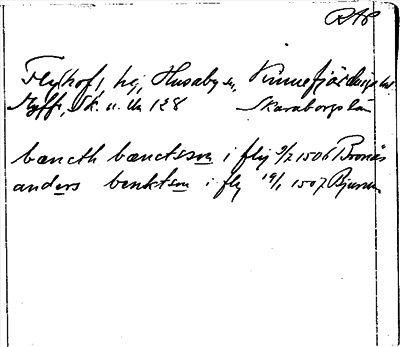 RAP
Flyhof, hg, Husaby sn, Kinnefjärdings hd
Myff, Sk. u. 128 Skaraborgs län
bæncth bænctsson i flij 9/2 1506 Bronäs
anders benktson i fly 19/1 1507 Bjurum